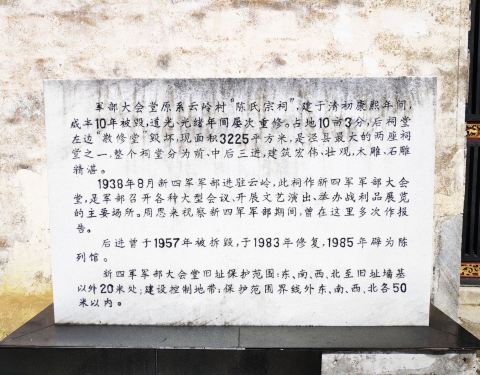 军部大会堂原系云岭村“陈氏宗祠”,建于清初康熙年间,
咸丰10年被毁,道光、光绪年间屡次重修。占地10亩3分,后祠堂
左边“敦修堂”毁坏,现面积3225平方米,是泾县最大的两座祠
堂之一,整个祠堂分为前、中后三进,建筑宏伟、壮观,木雕、石雕
精湛。
1938年8月新四军军部进驻云岭,此祠作新四军军部大会
堂,是军部召开各种大型会议、开展文艺演出、举办战利品展览
的主要场所。周恩来视察新四军军部期间,曾在这里多次作报
告。
后进曾于1957年被拆毁,于1983年修复,1985年辟为陈
列馆。
新四军军部大会堂旧址保护范围:东、南、西、北至旧址墙基
以外20米处;建设控制地带:保护范围界线外东、南、西、北各50
米以内。